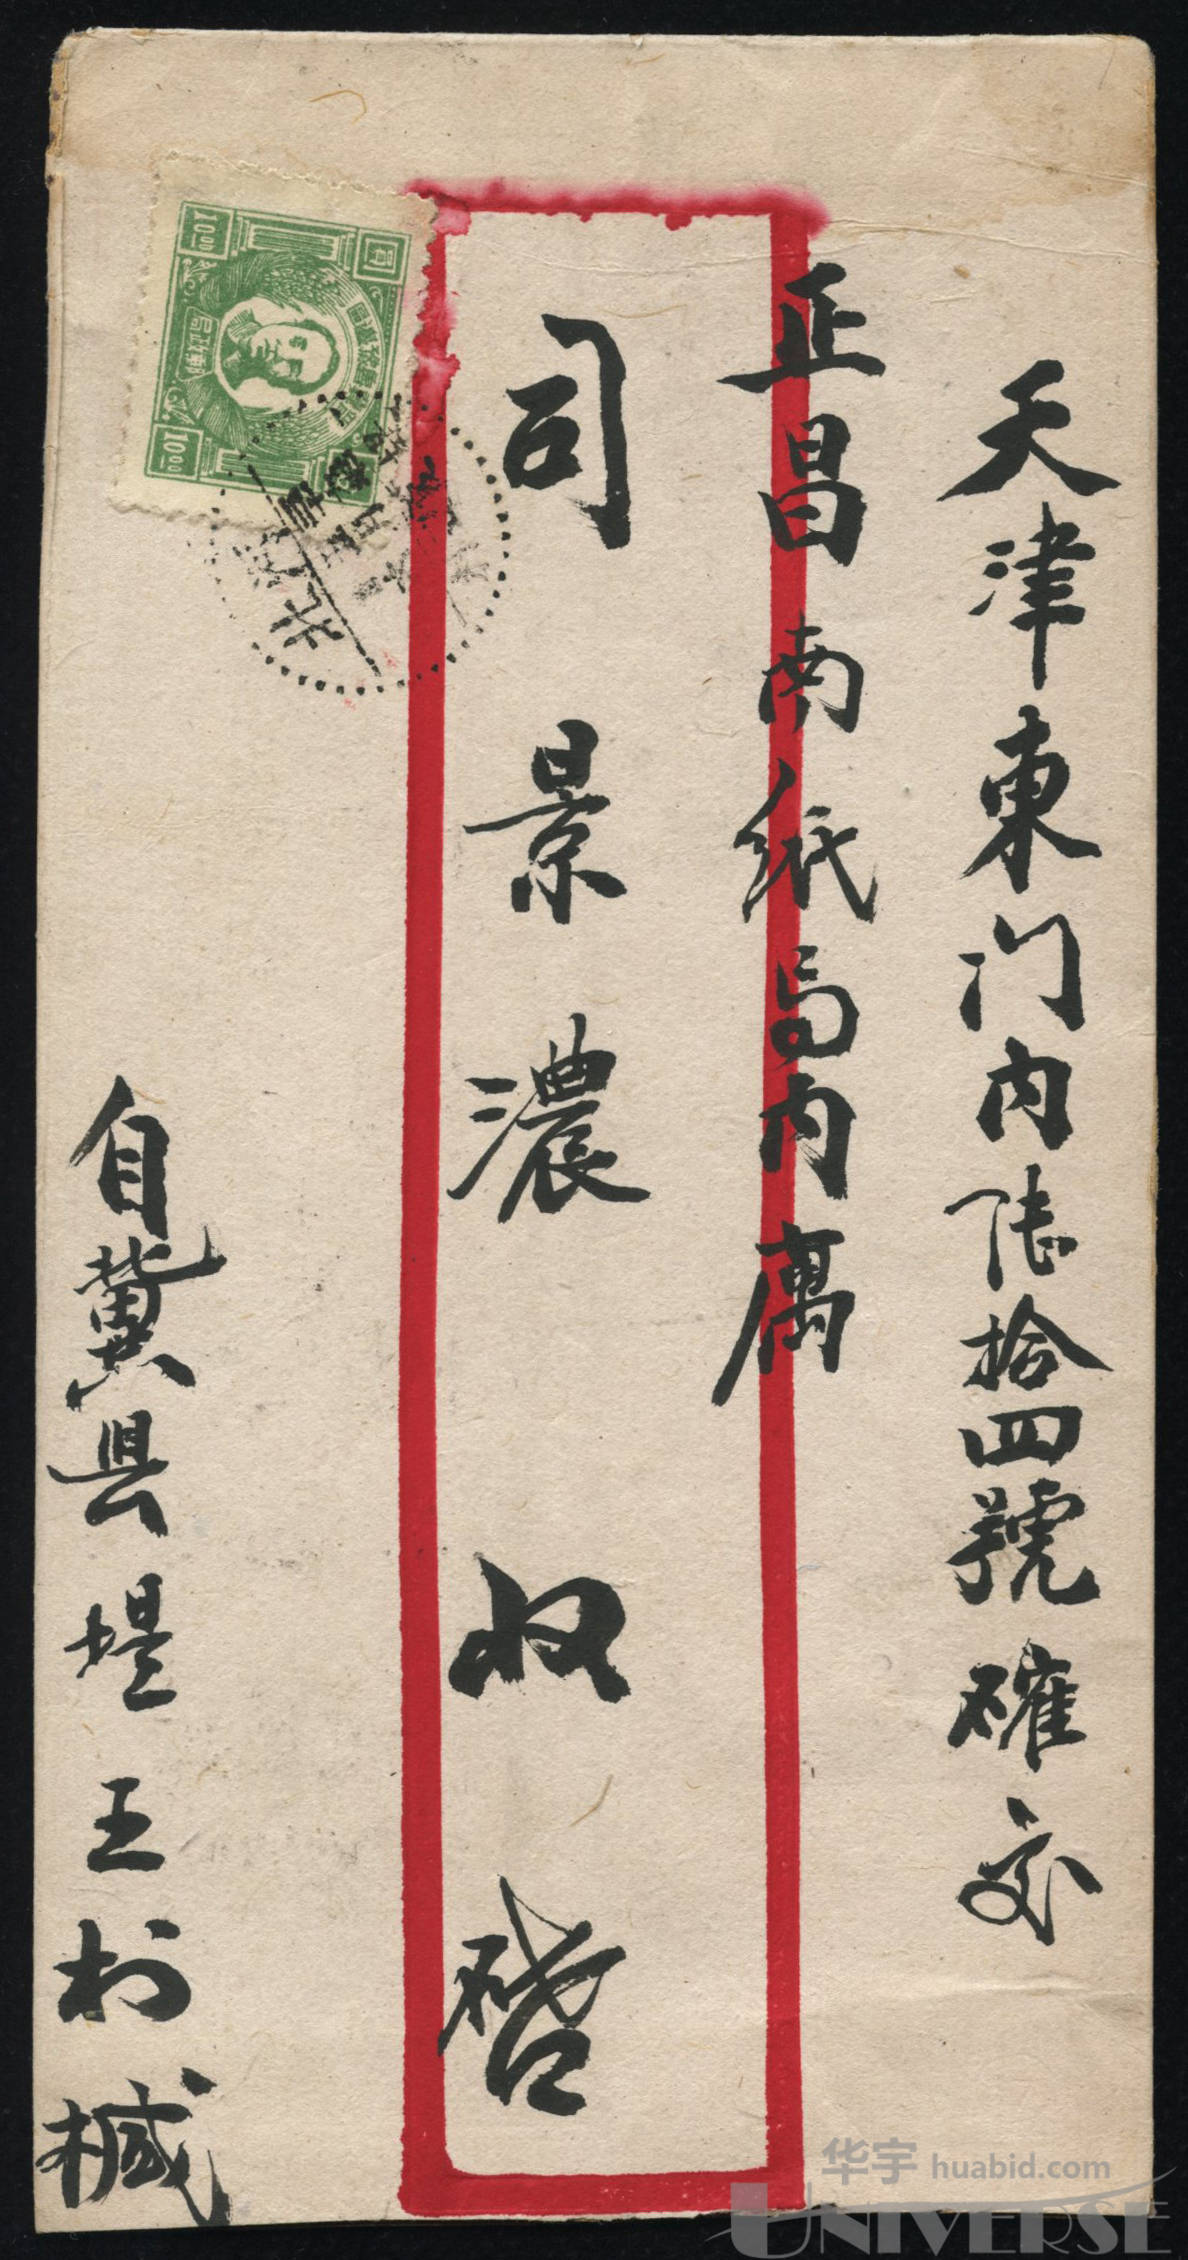 天津東门内陸拾四號確交
正昌南纸局内寓
司景濃收啓
自冀县堤王村械
圓
10.00
10.00
郵政局
华宇 huabid.com
UNIVERSE